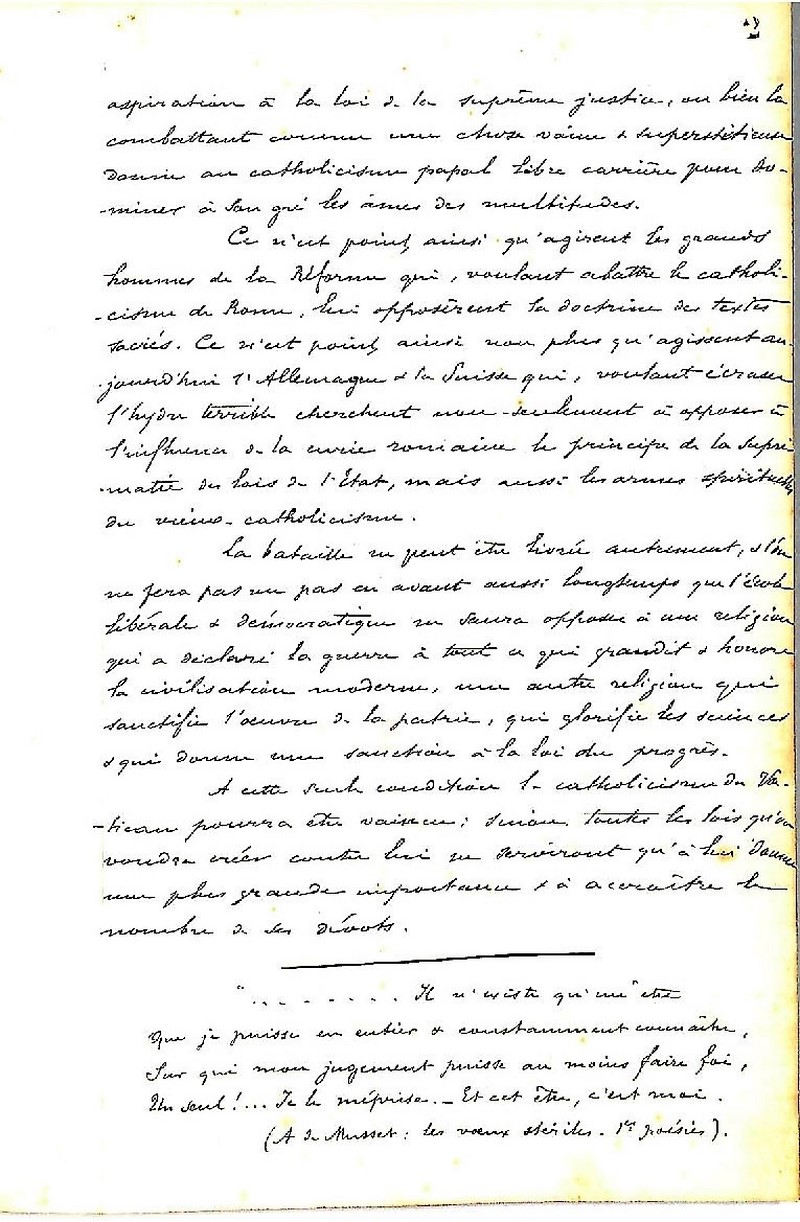 2
aspiration à la loi de la suprême justice, ou bien la
combattant comme une chose vaine & superstitieuse
donne au catholicisme papal libre carrière pour do-
-miner à son gré les âmes des multitudes.
Ce n'est point ainsi qu'agirent les grands
hommes de la Réforme qui, voulant abattre le catholi-
-cisme de Rome, lui opposèrent la doctrine des textes
sacrés. Ce n'est point ainsi non plus qu'agissent au-
-jourd'hui l'Allemagne & la Suisse qui, voulant écraser
l'hydre terrible cherchent non-seulement à opposer à
l'influence de la curie romaine le principe de la supré-
-matie des lois de l'Etat, mais aussi les armes spirituelles
du vieux-catholicisme.
La bataille ne peut être livrée autrement, & l'on
ne fera pas un pas en avant aussi longtemps que l'école
libérale & démocratique ne saura opposer à une religion
qui a déclaré la guerre à tout ce qui grandit & honore
la civilisation moderne, une autre religion qui
sanctifie l'œuvre de la patrie, qui glorifie les sciences
& qui donne une sanction à la loi du progrès.
A cette seule condition le catholicisme du Va-
-tican pourra être vaincu; sinon toutes les lois qu'on
voudra créer contre lui ne serviront qu'à lui donner
une plus grande importance & à accroître le
nombre de ses dévots.
"........ Il n'existe qu'un être
Que je puisse en entier & constamment connaître,
Sur qui mon jugement puisse au moins faire foi,
Un seul!... Je le méprise. _ Et cet être, c'est moi.
(A de Musset: les vœux stériles. 1res poésies).